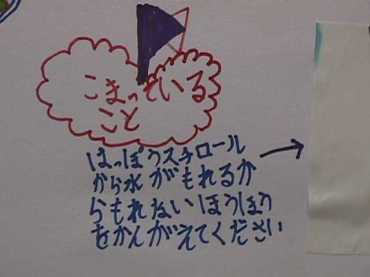 こまっている
こと
はっぽうスチロール
から水がもれるか
らもれないほうほう
をかんがえてください